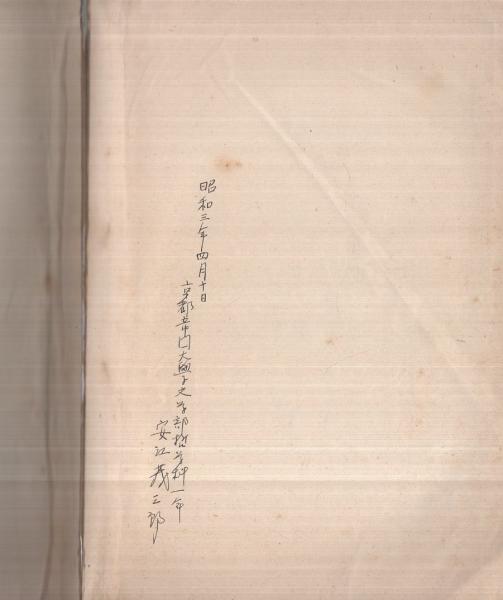 昭和三年四月十日
京都帝国大學文学部哲学科一年
安江茂三郎